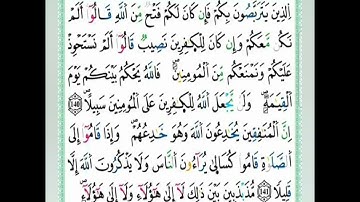 الَّذِينَ يَتَرَبَّصُونَ بِكُمْ فَإِن كَانَ لَكُمْ فَتْحٌ مِّنَ اللَّهِ قَالُوٓا۟ أَلَمْ
نَكُن مَّعَكُمْ وَإِن كَانَ لِلْكَٰفِرِينَ نَصِيبٌ قَالُوٓا۟ أَلَمْ نَسْتَحْوِذْ
عَلَيْكُمْ وَنَمْنَعْكُم مِّنَ الْمُؤْمِنِينَ ۚ فَاللَّهُ يَحْكُمُ بَيْنَكُمْ يَوْمَ
الْقِيَٰمَةِ ۗ وَلَن يَجْعَلَ اللَّهُ لِلْكَٰفِرِينَ عَلَى الْمُؤْمِنِينَ سَبِيلًا ۝ 140
إِنَّ الْمُنَٰفِقِينَ يُخَٰدِعُونَ اللَّهَ وَهُوَ خَٰدِعُهُمْ وَإِذَا قَامُوٓا۟ إِلَى
الصَّلَوٰةِ قَامُوا۟ كُسَالَىٰ يُرَآءُونَ النَّاسَ وَلَا يَذْكُرُونَ اللَّهَ إِلَّا
قَلِيلًا 141 مُّذَبْذَبِينَ بَيْنَ ذَٰلِكَ لَآ إِلَىٰ هَٰٓؤُلَآءِ وَلَآ إِلَىٰ هَٰٓؤُلَآءِ ۚ